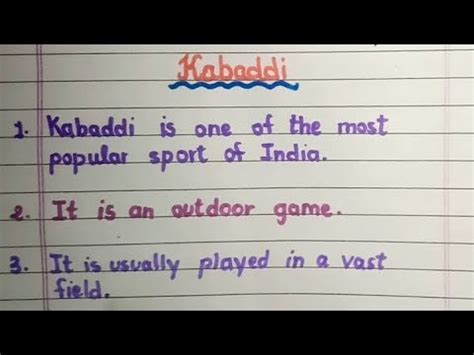 Kabaddi
1. Kabaddi is one of the most
popular sport of India.
2. It is an outdoor game.
3. It is usually played in a vast
field.